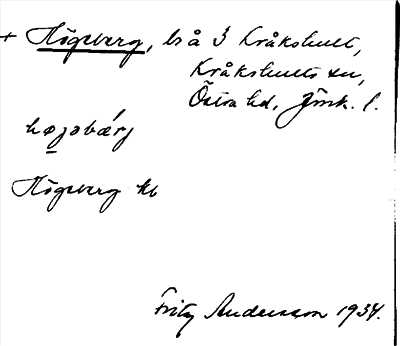 + Högeberg, bs å 3 Kråkshult,
Kråkshults sn,
Östra hd, Jönk. l.
høgəbärj
Högeberg kb
Fritz Andersson 1934.